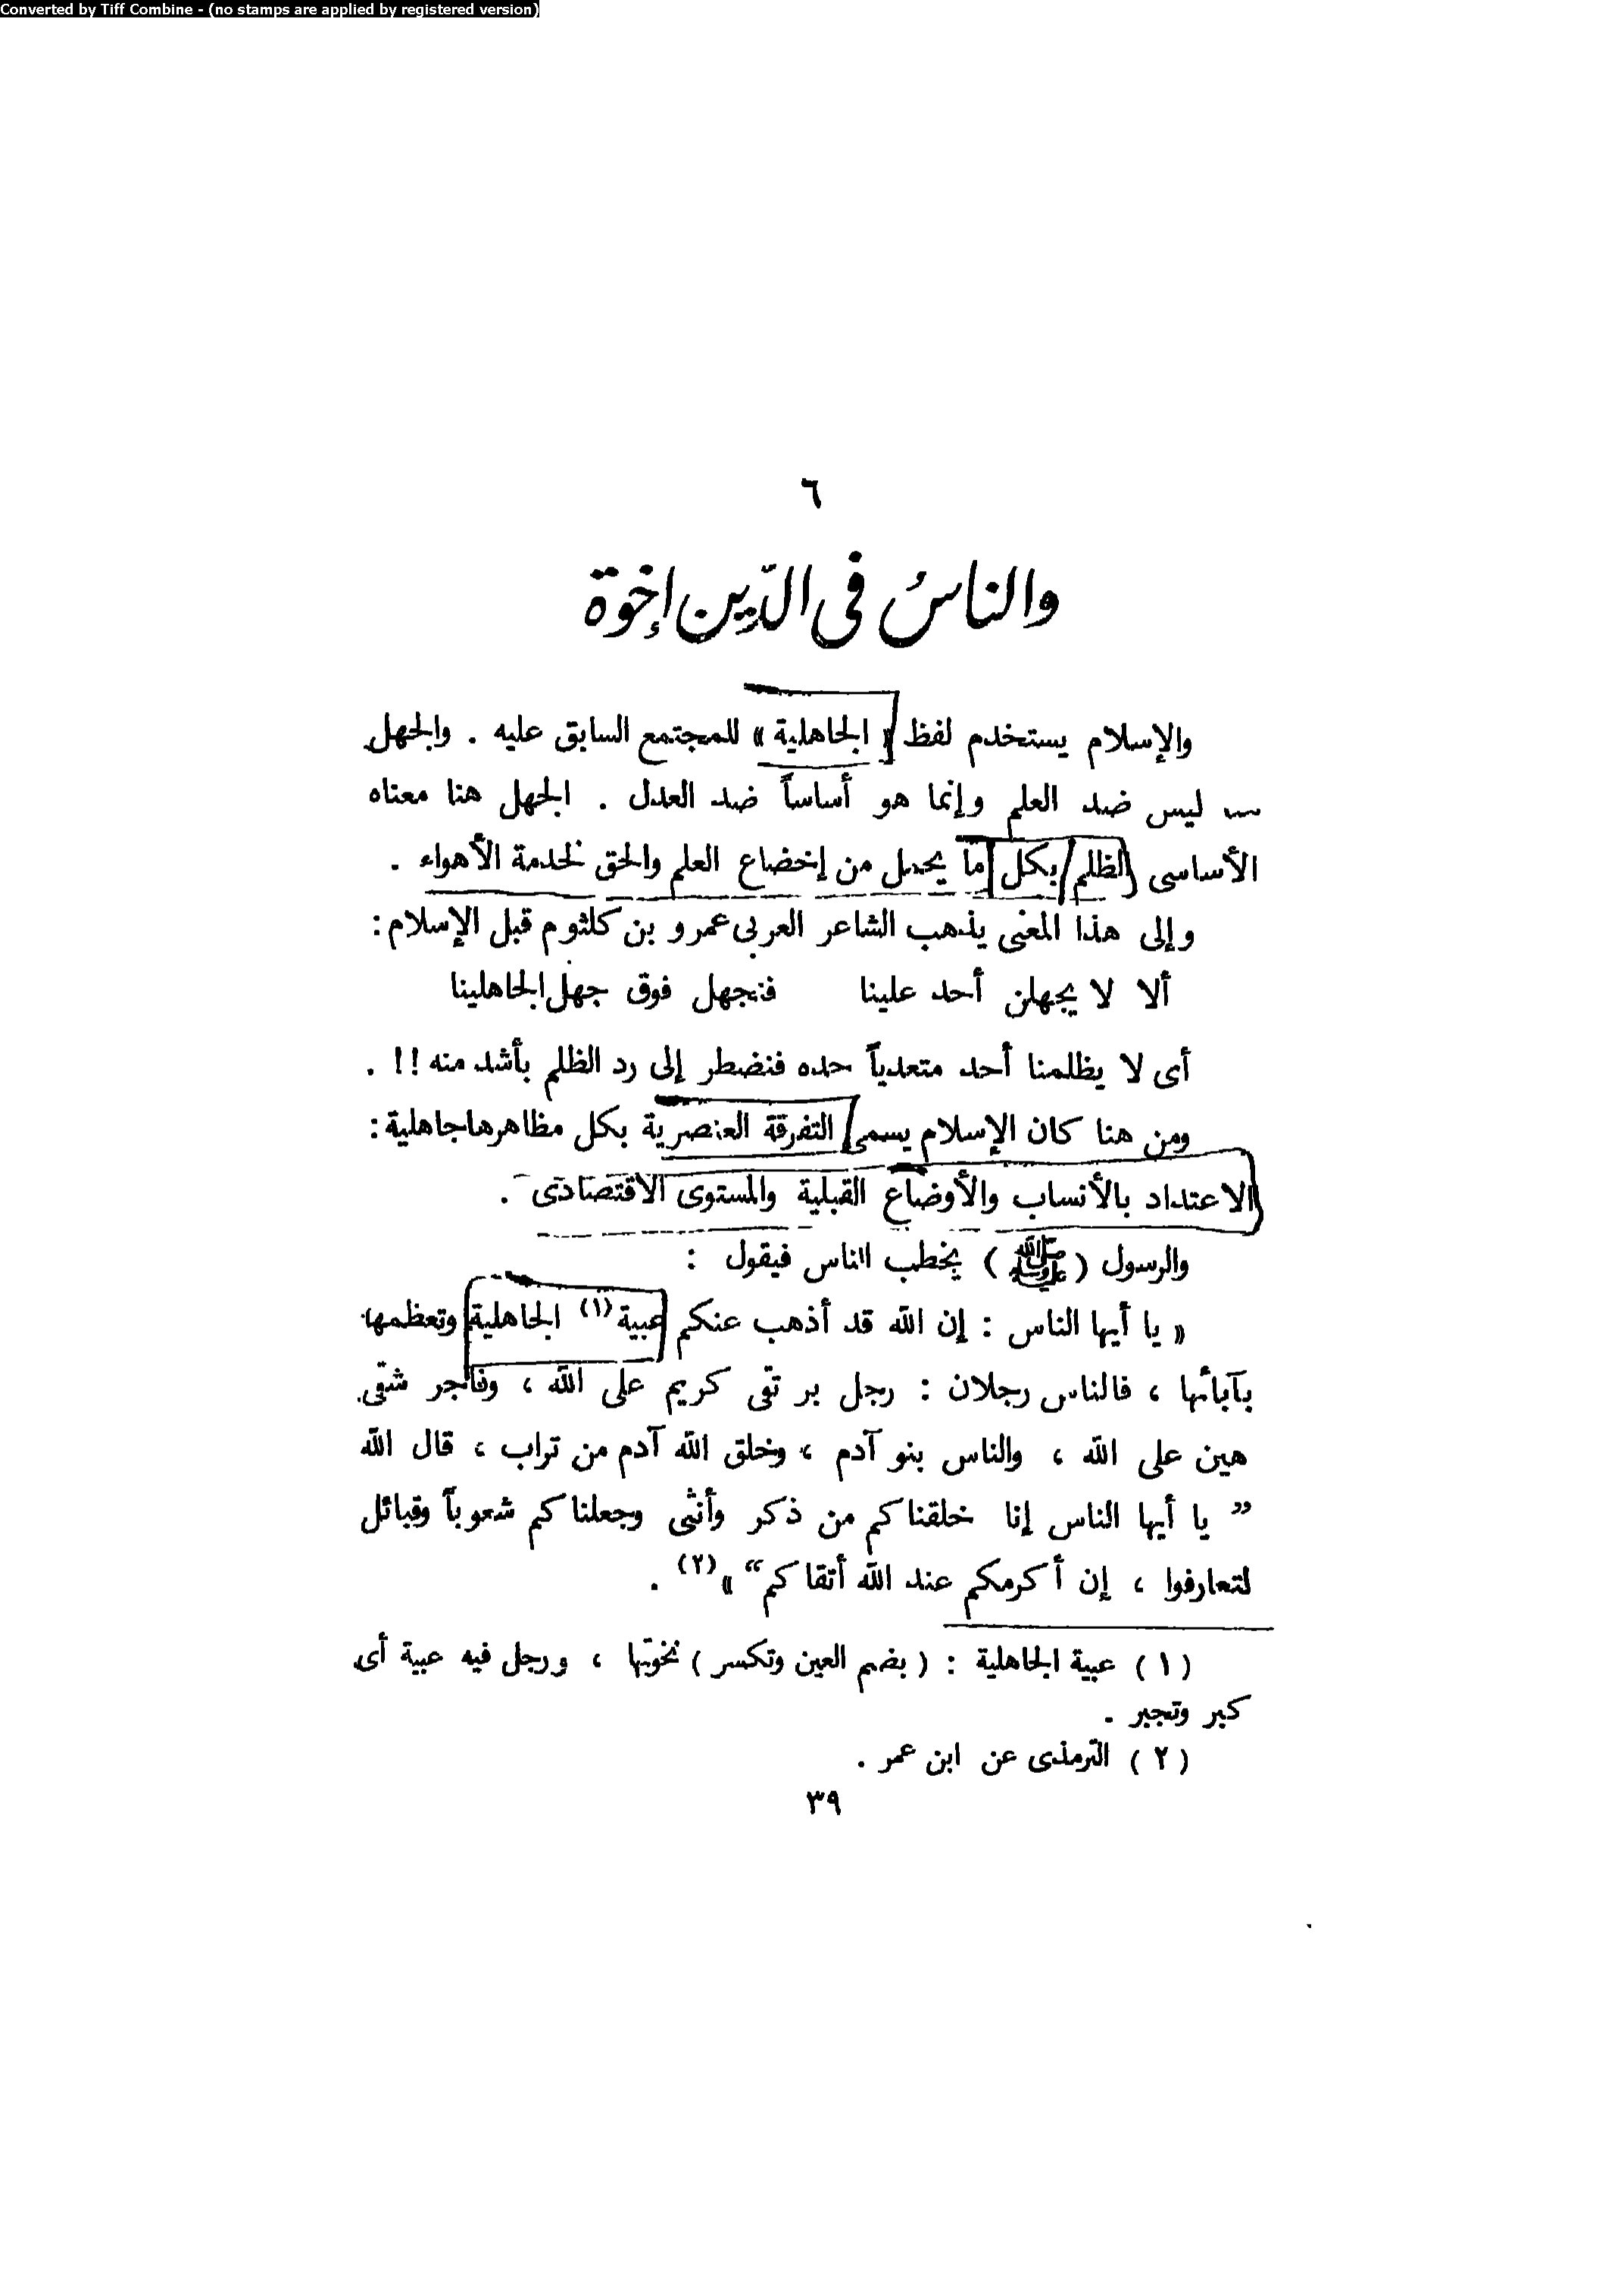 Converted by Tiff Combine - (no stamps are applied by registered version)
٦
والناسُ فى الدِّين إخوة
والإسلام يستخدم لفظ « الجاهلية » للمجتمع السابق عليه . والجهل
ليس ضد العلم وإنما هو أساساً ضد العدل . الجهل هنا معناه
الأساسى الظلم بكل ما يحمل من إخضاع العلم والحق لخدمة الأهواء .
وإلى هذا المعنى يذهب الشاعر العربى عمرو بن كلثوم قبل الإسلام :
ألا لا يجهلن أحد علينا فنجهل فوق جهل الجاهلينا
أى لا يظلمنا أحد متعدياً حده فنضطر إلى رد الظلم بأشد منه !! .
ومن هنا كان الإسلام يسمى التفرقة العنصرية بكل مظاهرها جاهلية :
الاعتداد بالأنساب والأوضاع القبلية والمستوى الاقتصادى .
والرسول ( ﷺ ) يخطب الناس فيقول :
« يا أيها الناس : إن الله قد أذهب عنكم عبية (١) الجاهلية وتعظمها
بآبائها ، فالناس رجلان : رجل بر تقى كريم على الله ، وفاجر شقى
هين على الله ، والناس بنو آدم ، وخلق الله آدم من تراب ، قال الله
” يا أيها الناس إنا خلقناكم من ذكر وأنثى وجعلناكم شعوباً وقبائل
لتعارفوا ، إن أكرمكم عند الله أتقاكم “ » (٢) .
( ١ ) عبية الجاهلية : ( بضم العين وتكسر ) نخوتها ، ورجل فيه عبية أى
كبر وتجبر .
( ٢ ) الترمذى عن ابن عمر .
٣٩